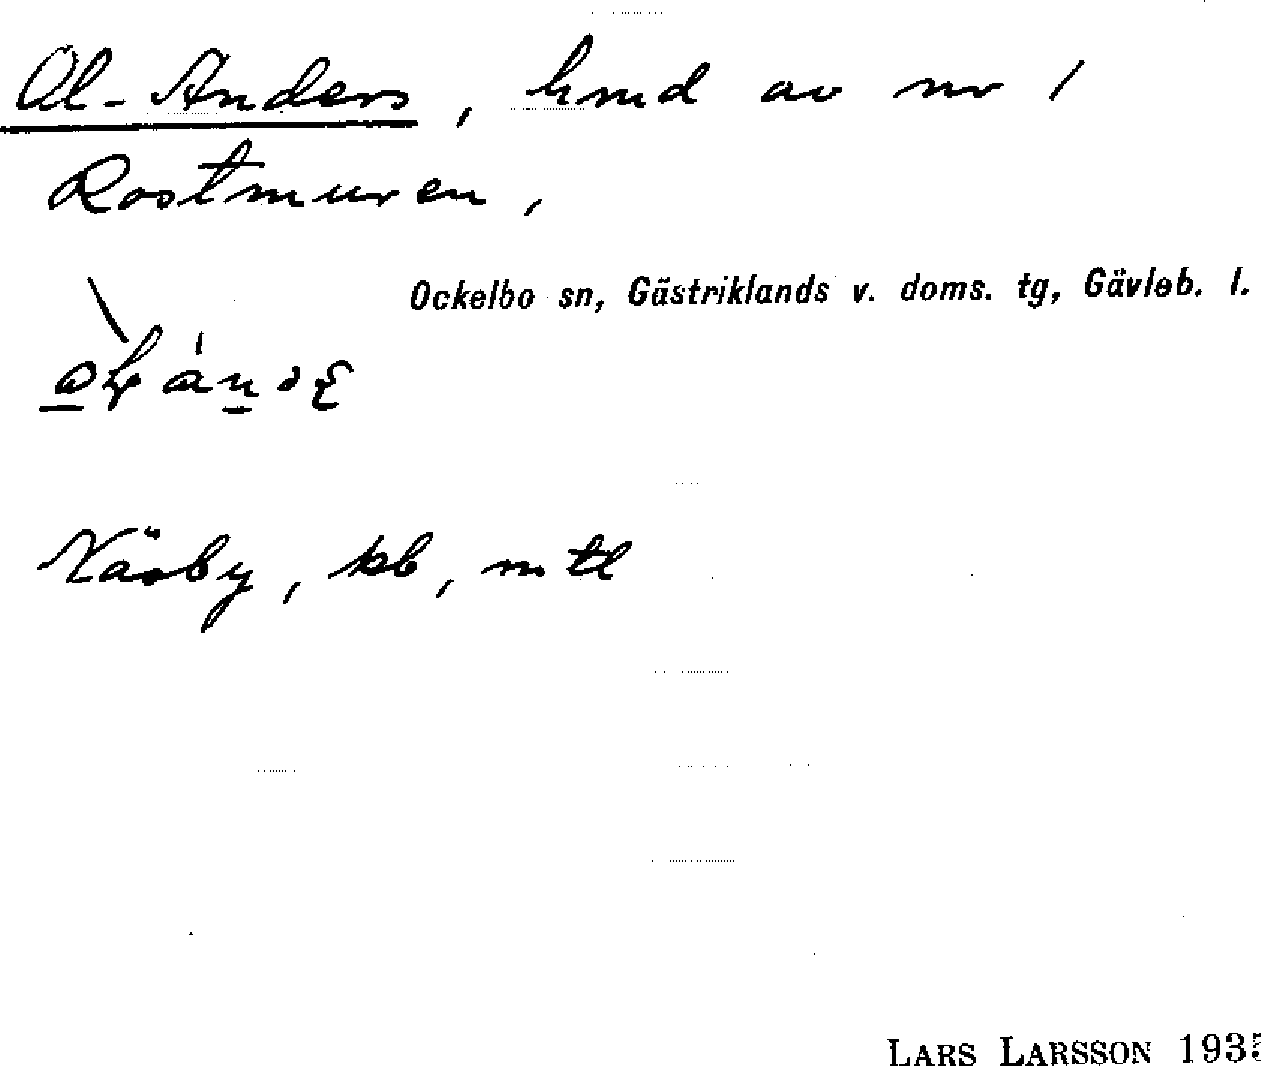 Ol-Anders, hmd av nr 1
Rostmuren,
Ockelbo sn, Gästriklands v. doms. tg, Gävleb. l.
Näsby, kb, mtl
LARS LARSSON 1935